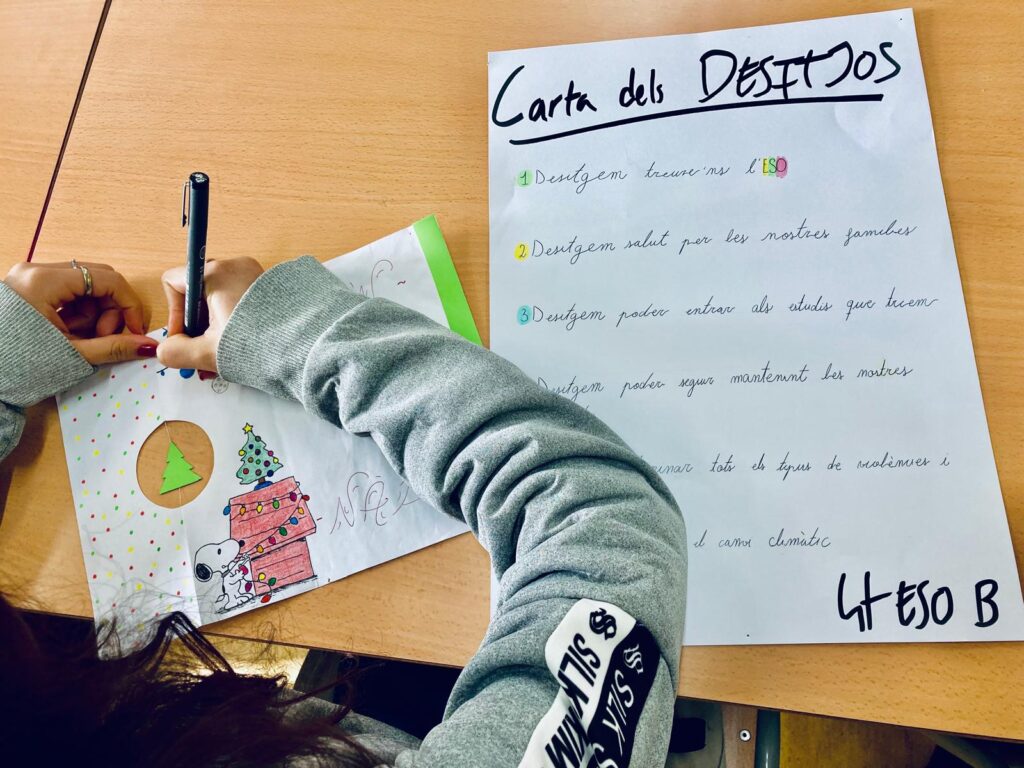 Carta dels DESITJOS
1 Desitgem treure'ns l'ESO
2 Desitgem salut per les nostres famílies
3 Desitgem poder entrar als estudis que triem
Desitgem poder seguir mantenint les nostres
tots els tipus de violències i
el canvi climàtic
4t ESO B
SILK
SILK